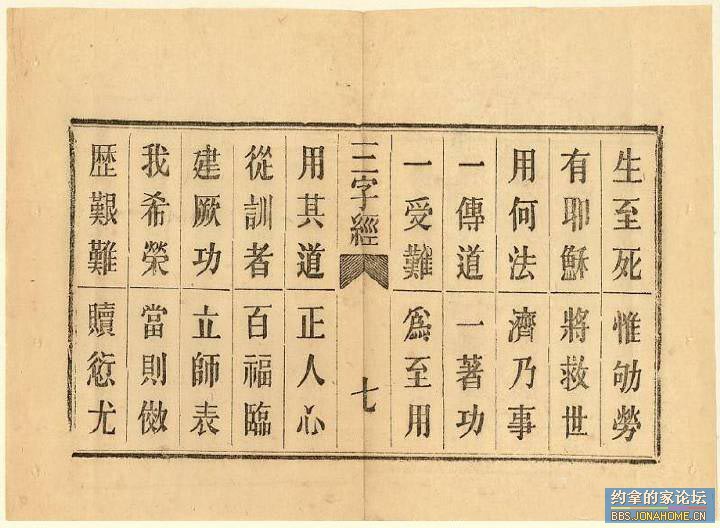 生至死 惟劬勞
有耶穌 將救世
用何法 濟乃事
一傳道 一著功
一受難 爲至用
三字經 七
用其道 正人心
從訓者 百福臨
建厥功 立師表
我希榮 當則傚
歷艱難 贖愆尤
约拿的家论坛
BBS.JONAHOME.CN